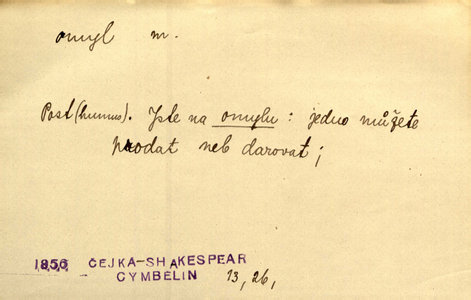 omyl m.
Post(humus). Jste na omylu: jedno můžete
prodat neb darovat;
1856 ČEJKA-SHAKESPEAR
CYMBELIN 13, 26,